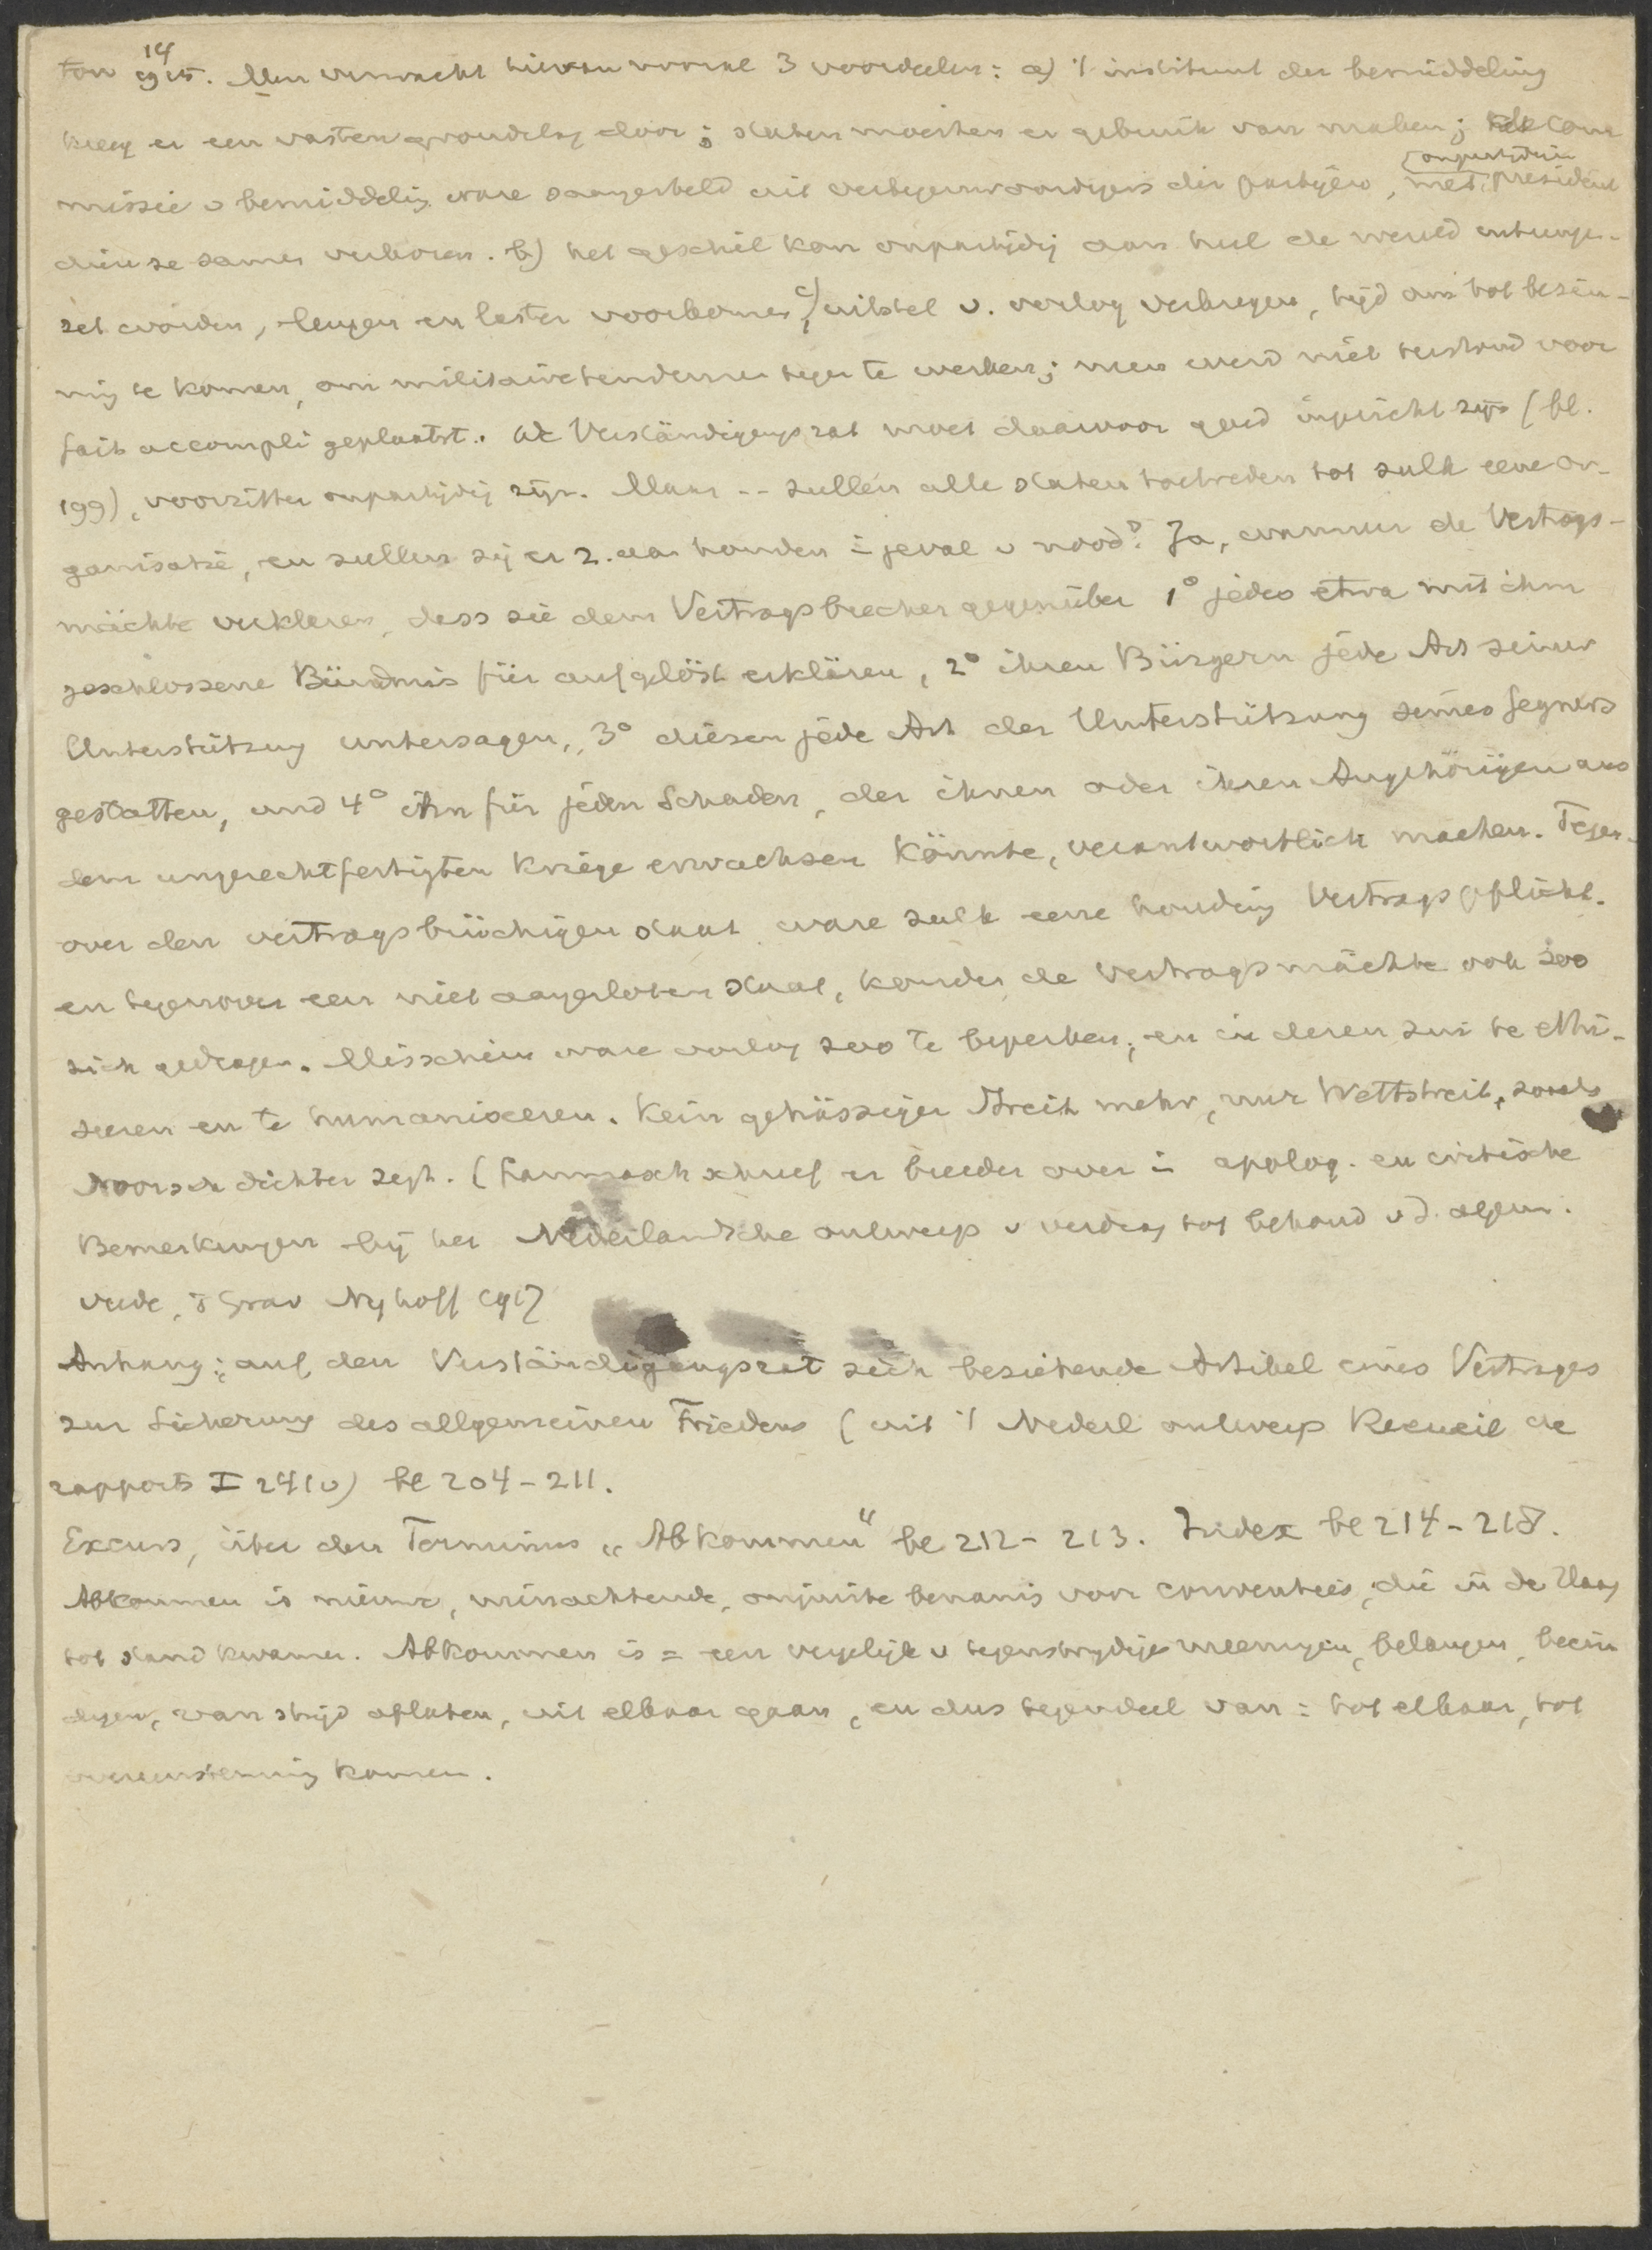 ton 1914. Men verwacht hiervan vooral 3 voordeelen: a) 't instituut der bemiddeling
kreeg er een vasten grondslag door; staten moesten er gebruik van maken; elke com
missie v bemiddeling ware saamgesteld uit vertegenwoordigers der partijen, met onpartijdigen president
dien ze samen verkozen. b) het geschil kan onpartijdig aan heel de wereld uiteenge-
zet worden, leugen en laster voorkomen, c) uitstel v. oorlog verkregen, tijd om tot bezin-
ning te komen, om militaire tendenzen tegen te werken; men werd niet terstond voor
fait accompli geplaatst. De Verständigungsrat moet daarvoor goed ingericht zijn (bl.
199), voorzitter onpartijdig zijn. Maar -- zullen alle staten toetreden tot zulk eene or-
ganisatie, en zullen zij er z. aan houden in geval v nood? Ja, wanneer de Vertrags-
mächte verklaren, dass sie dem Vertragsbrecher gegenüber 1° jedes etwa mit ihm
geschlossene Bündnis für aufgelöst erklären, 2° ihren Bürgern jede Art seiner
Unterstützung untersagen, 3° diesen jede Art der Unterstützung seines Gegners
gestatten, und 4° ihn für jeden Schaden, der ihnen oder ihren Angehörigen aus
dem ungerechtfertigten Kriege erwachsen könnte, verantwortlich machen. Tegen-
over den vertragsbrüchigen staat ware zulk eene houding Vertragspflicht.
en tegenover een niet aangesloten staat, konden de Vertragsmächte ook zoo
zich gedragen. Misschien ware oorlog zoo te beperken, en in deren zin te ethi-
seeren en te humaniseeren. Kein gehässiger Streit mehr, nur Wettstreit, zooals
Noorsch dichter zegt. (Lammasch schreef er breeder over in apolog. en critische
Bemerkungen bij het Nederlandsche ontwerp v verdrag tot behoud v d. algem.
vrede, 's Grav Nyhoff 1917
Anhang: auf den Verständigungsrat sich beziehende Artikel eines Vertrages
zur Sicherung des allgemeinen Friedens (uit 't Nederl ontwerp Recueil de
rapports I 241 v) bl 204-211.
Excurs, über den Terminus „Abkommen" bl 212-213. Index bl 214-218.
Abkommen is nieuwe, minachtende, onjuiste benaming voor conventies, die in de Haag
tot stand kwamen. Abkommen is = een vergelijk v tegenstrijdige meeningen, belangen, beein
digen, van strijd aflaten, uit elkaar gaan, en dus tegendeel van: tot elkaar, tot
overeenstemming komen.